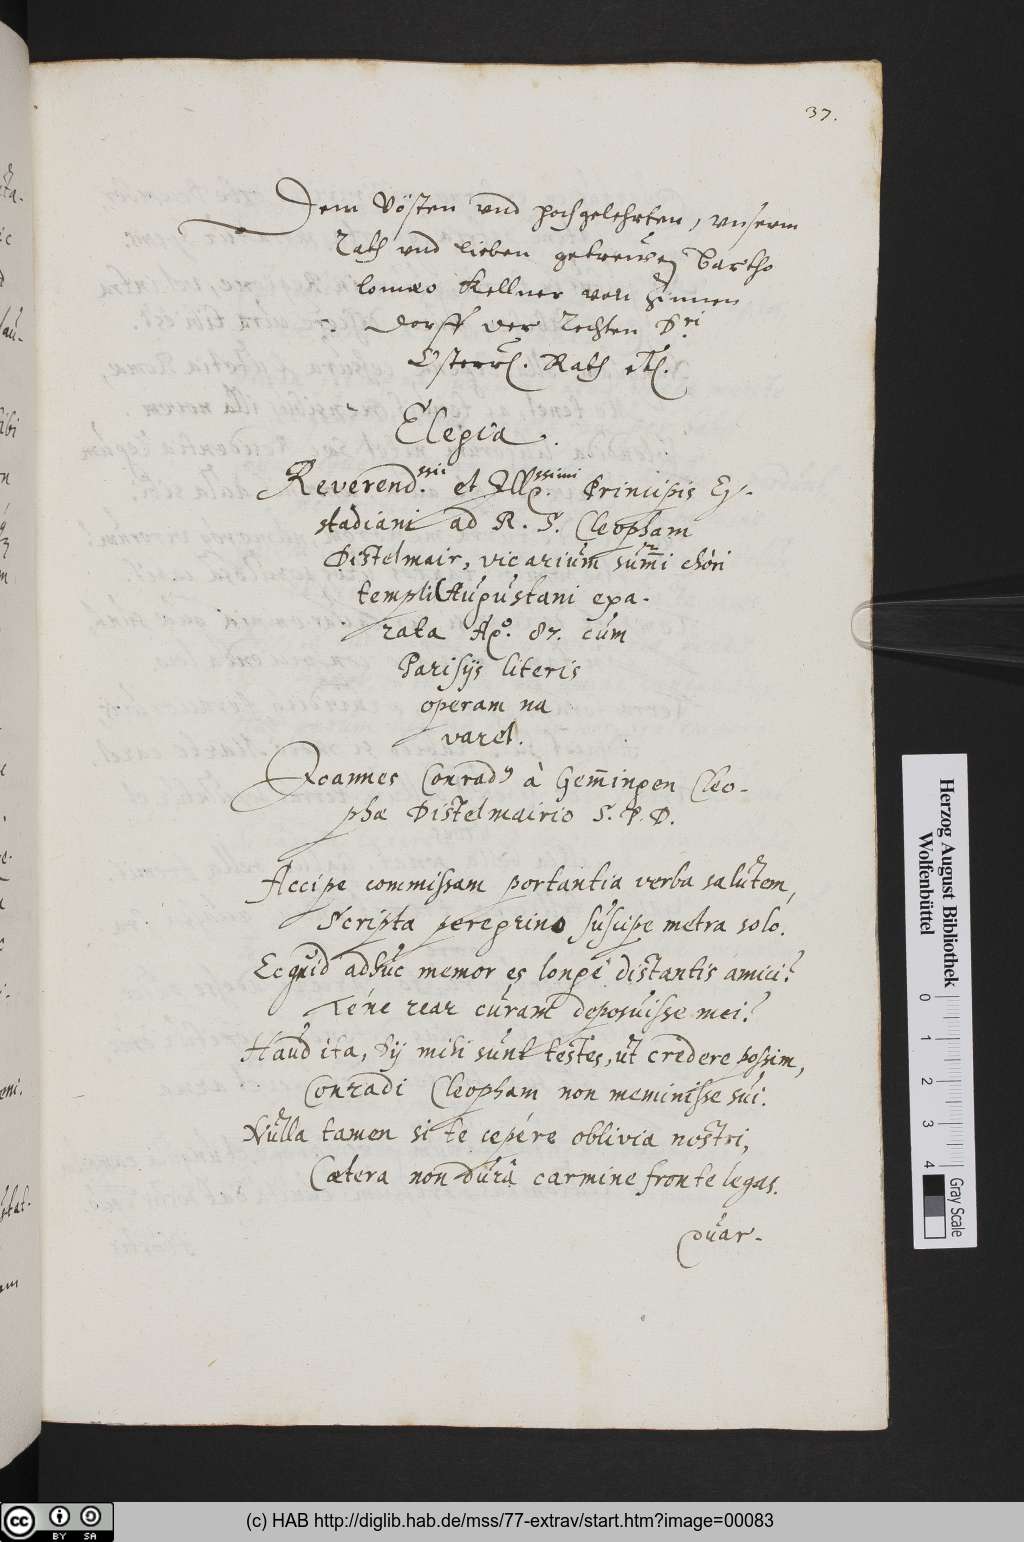 37.
Dem Vösten vnd hochgelehrten, vnserm
Rath vnd lieben getrewen Bartho
lomæo Kellner von Zinnen
dorff der Rechten Dri
Österr. Rath etc.
Elegia.
Reverend.ssii et Ill.ssimi Principis Ey-
stadiani ad R. D. Cleopham
Distelmair, vicarium sum̄i chori
templi Augustani exa-
rata Ao. 87. cum
Parisijs literis
operam na
varet.
Joannes Conrad9 à Gem̄ingen Cleo-
phæ Distelmairio S. P. D.
Accipe commissam portantia verba salutem,
Scripta peregrino suscipe metra solo.
Ecquid adhuc memor es longè distantis amici?
Téne rear curam deposuisse mei?
Haud ita, dij mihi sunt testes, ut credere possim,
Conradi Cleopham non meminisse sui.
Nulla tamen si te cepére oblivia nostri,
Cætera non durâ carmine fronte legas.
Quar-
Herzog August Bibliothek
Wolfenbüttel
0 1 2 3 4
Gray Scale
cc BY SA
(c) HAB http://diglib.hab.de/mss/77-extrav/start.htm?image=00083